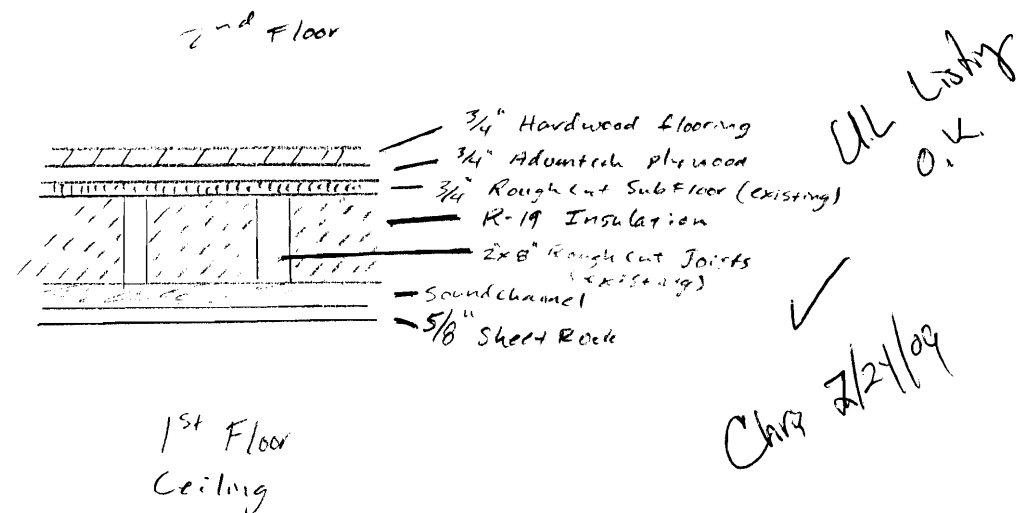 2nd Floor
3/4" Hardwood flooring
3/4" Advantech plywood
3/4" Rough Cut Subfloor (existing)
R-19 Insulation
2"x8" Rough Cut Joists
(existing)
Soundchannel
5/8" Sheet Rock
1st Floor
Ceiling
U.L Listing
O.K.
✓
Chris 2/24/09